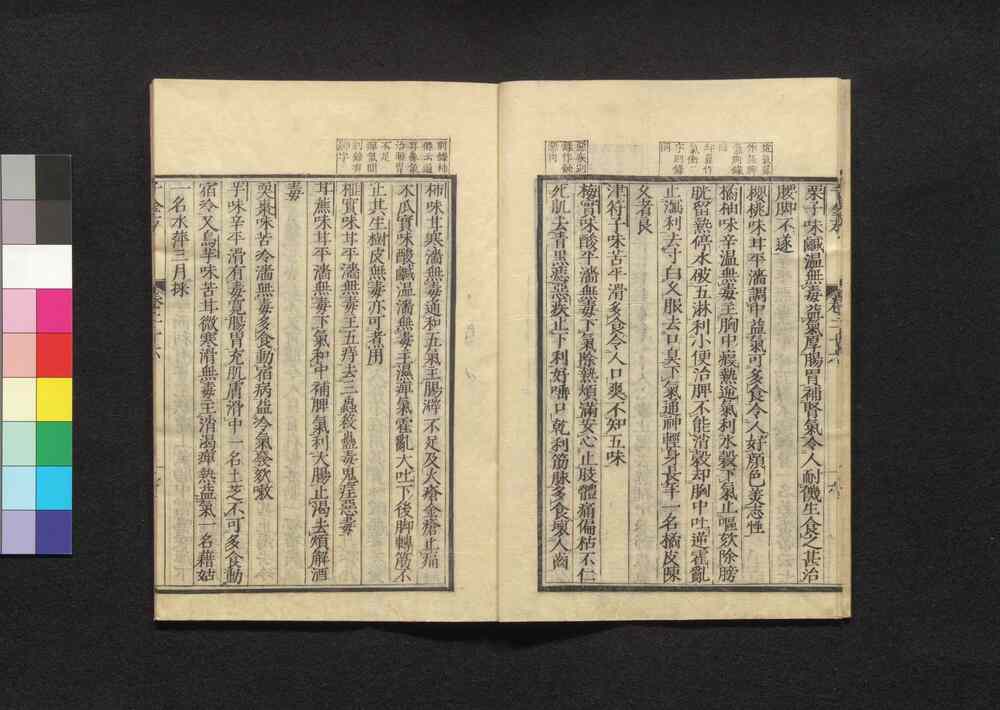 栗子味鹹溫無毒益氣厚腸胃補腎氣令人耐饑生食之甚治
腰脚不遂
櫻桃味甘平濇調中益氣可多食令人好顔色美志性
橘柚味辛溫無毒主胸中瘕熱逆氣利水穀下氣止嘔欬除膀
胱留熱停水破五淋利小便治脾不能消穀却胸中吐逆霍亂
止瀉利去寸白久服去口臭下氣通神輕身長年一名橘皮陳
久者良
津符子味苦平滑多食令人口爽不知五味
梅實味酸平濇無毒下氣除熱煩滿安心止肢體痛偏枯不仁
死肌去青黑痣惡疾止下利好唾口乾利筋脉多食壞人齒
柿味甘寒濇無毒通和五氣主腸澼不足及火瘡金瘡止痛
木瓜實味酸鹹溫濇無毒主濕痺氣霍亂大吐下後脚轉筋不
止其生樹皮無毒亦可煮用
榧實味甘平濇無毒主五痔去三蟲殺蠱毒鬼疰惡毒
甘蔗味甘平濇無毒下氣和中補脾氣利大腸止渴去煩解酒
毒
耎棗味苦冷濇無毒多食動宿病益冷氣發欬嗽
芋味辛平滑有毒寬腸胃充肌膚滑中一名土芝不可多食動
宿冷又烏芋味苦甘微寒滑無毒主消渴癉熱益氣一名藉姑
一名水萍三月採